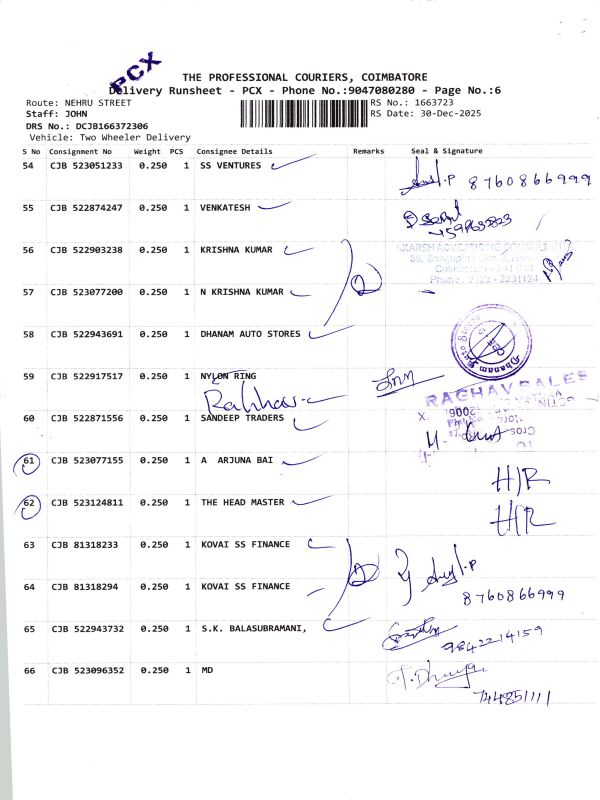 PCX
THE PROFESSIONAL COURIERS, COIMBATORE
Delivery Runsheet - PCX - Phone No.:9047080280 - Page No.:6
Route: NEHRU STREET
RS No.: 1663723
Staff: JOHN
RS Date: 30-Dec-2025
DRS No.: DCJB166372306
Vehicle: Two Wheeler Delivery
S No Consignment No Weight PCS Consignee Details Remarks Seal & Signature
54 CJB 523051233 0.250 1 SS VENTURES
8760866999
55 CJB 522874247 0.250 1 VENKATESH
56 CJB 522903238 0.250 1 KRISHNA KUMAR
57 CJB 523077200 0.250 1 N KRISHNA KUMAR
58 CJB 522943691 0.250 1 DHANAM AUTO STORES
59 CJB 522917517 0.250 1 NYLON RING
RAGHAV SALES
60 CJB 522871556 0.250 1 SANDEEP TRADERS
61 CJB 523077155 0.250 1 A ARJUNA BAI
H/R
62 CJB 523124811 0.250 1 THE HEAD MASTER
H/R
63 CJB 81318233 0.250 1 KOVAI SS FINANCE
64 CJB 81318294 0.250 1 KOVAI SS FINANCE
8760866999
65 CJB 522943732 0.250 1 S.K. BALASUBRAMANI,
9842214159
66 CJB 523096352 0.250 1 MD